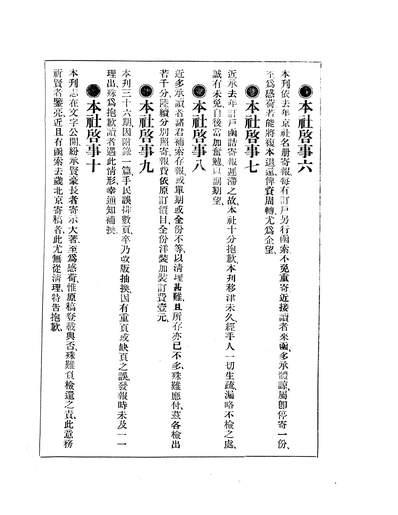 本社啓事六
本刊依去年京社名册寄報每有訂戶另行函索不免重寄近接讀者來函多承體諒屬卽停寄一份、
至爲感荷若能將複本退還俾資周轉尤爲企望、
本社啓事七
近承去年訂戶函詰寄報遲滯之故本社十分抱歉本刊移津未久經手人一切生疏漏略不檢之處、
誠有未免自後當加奮勉以副期望、
本社啓事八
近多承讀者諸君補索存報或單期或全份不等以清理甚難且所存亦已不多殊難應付茲各檢出
若干分陸續分別照寄報費依原訂價目全份洋裝加裝訂費壹元、
本社啓事九
本刊三十六期因附錄一篇手民誤排數頁卒乃改版抽換因有重頁或缺頁之誤發報時未及一一
理出殊爲抱歉讀者遇此情形幸通知補換、
本社啓事十
本刊志在文字公開紛承賢豪長者寄示大著至爲感荷惟原稿登載與否殊難負檢還之責此意務
祈賢者鑒亮近且有函索去歲北京寄稿者此尤無從清理特告抱歉、